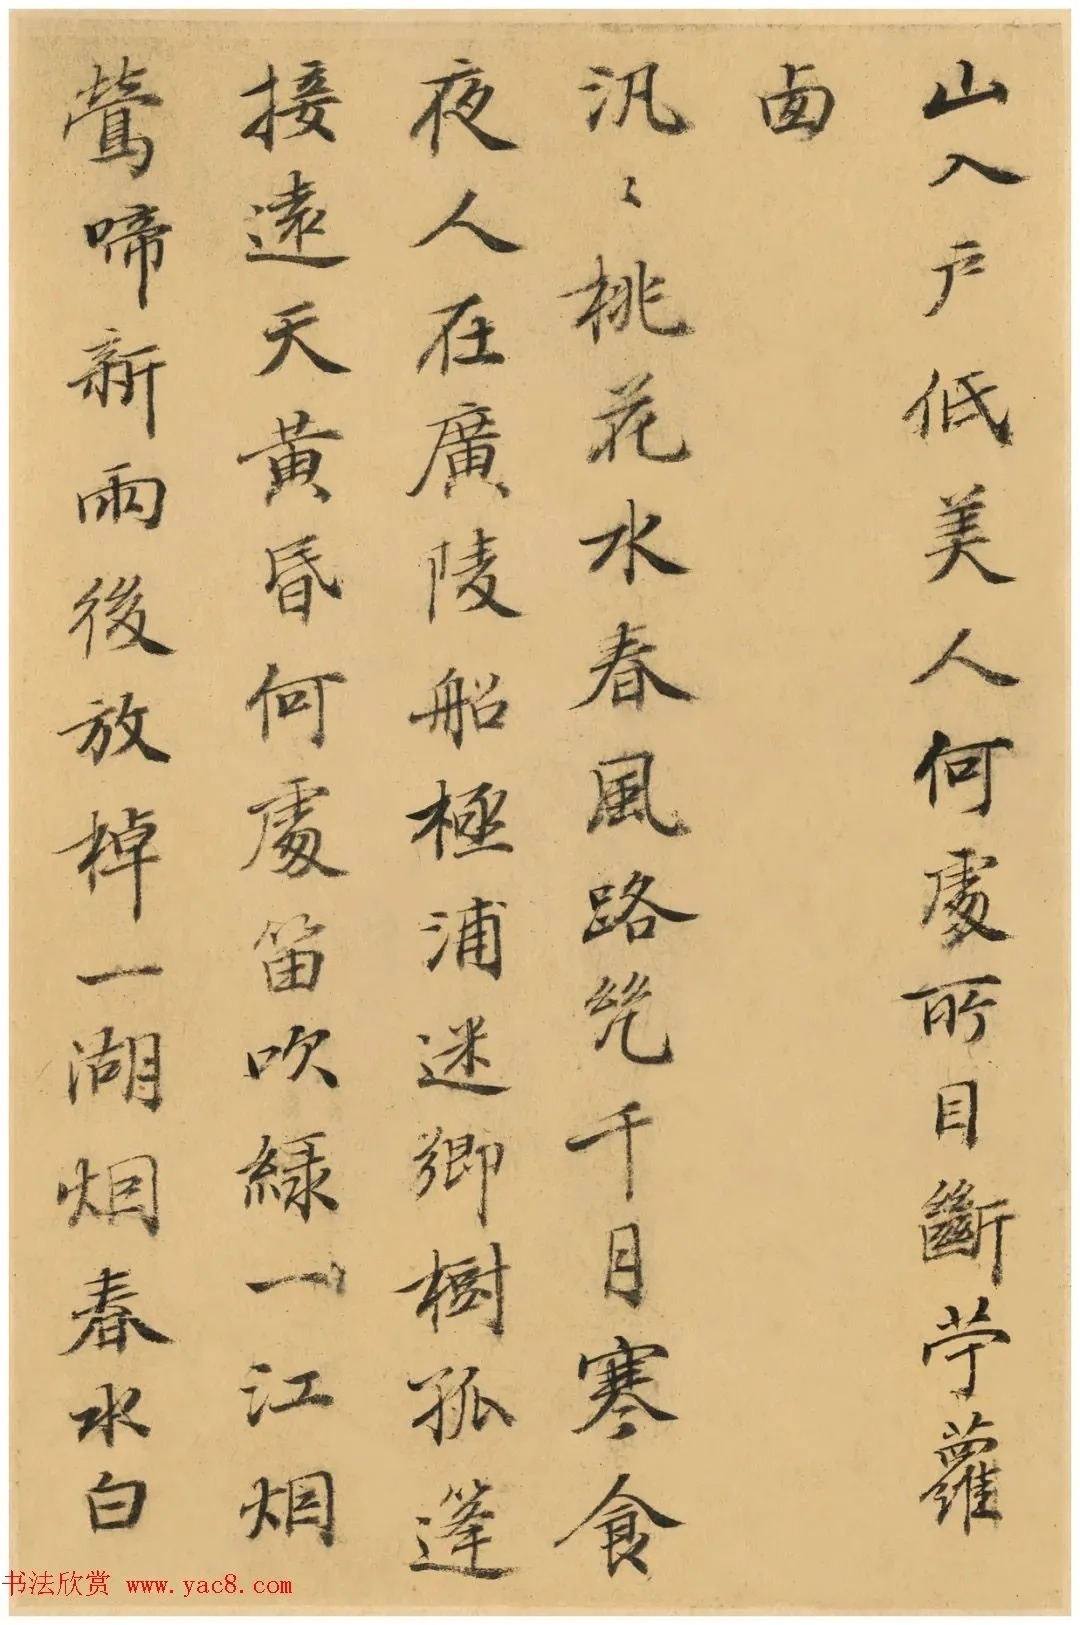 山入户低美人何處所目斷苧蘿
西
汎〻桃花水春風路絶千月寒食
夜人在廣陵船極浦迷鄉樹孤篷
接遠天黄昏何處笛吹綠一江烟
鶯啼新雨後放棹一湖烟春水白
书法欣赏 www.yac8.com